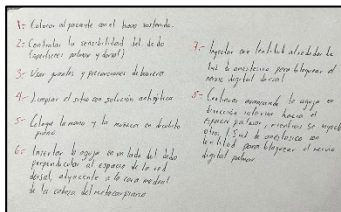 1:- Colocar al paciente con el brazo sostenido.
2:- Controlar la sensibilidad del dedo
(superficies palmar y dorsal)
3:- Usar guantes y precauciones de barrera
4:- Limpiar el sitio con solución
5:- Coloque la mano y la muñeca en
6:- Insertar la aguja en un lado del dedo
perpendicular al espacio de la red
dorsal, adyacente a la cara
de la cabeza del metacarpiano
7:- Inyectar con lentitud alrededor de
1ml de anestesico para bloquear el
nervio digital dorsal
8:- Continuar avanzando la aguja en
dirección inferior hacia el
espacio palmar mientras se inyecta
otros 1ml de anestesico con
lentitud para bloquear el nervio
digital palmar